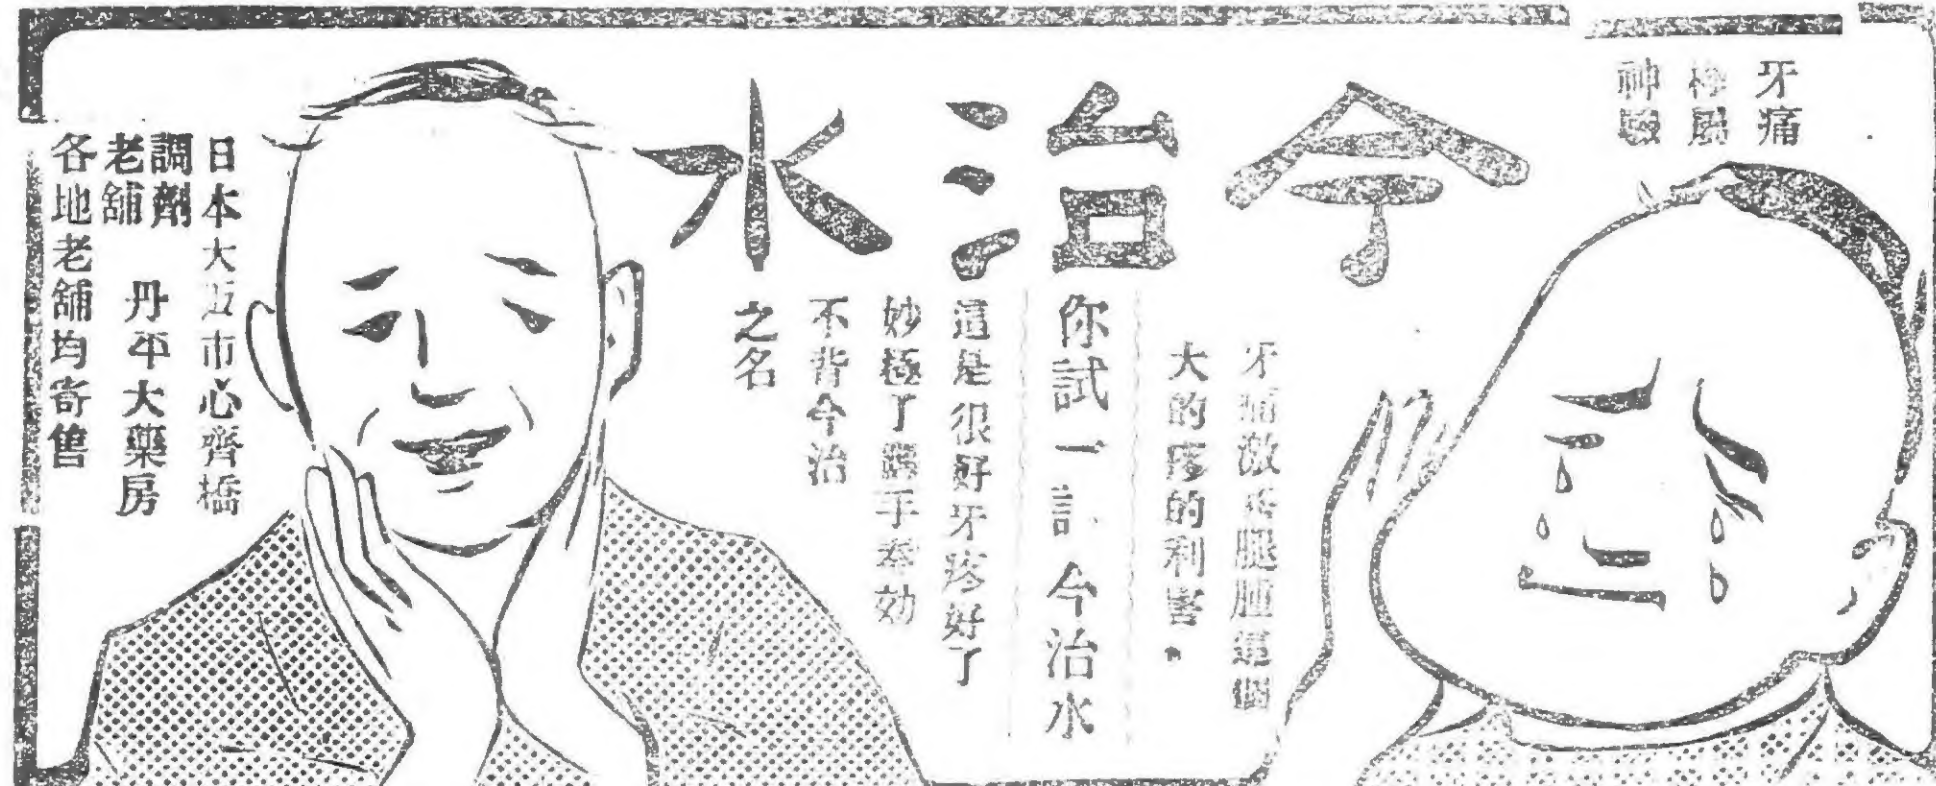 牙痛
神驗
今治水
牙痛激烈腮腫這個
大的疼的利害。
你試一試今治水
這是很好牙疼好了
妙極了 手奉効
不背今治
之名
日本大阪市心齊橋
調劑
老舖
丹平大藥房
各地老舖均寄售